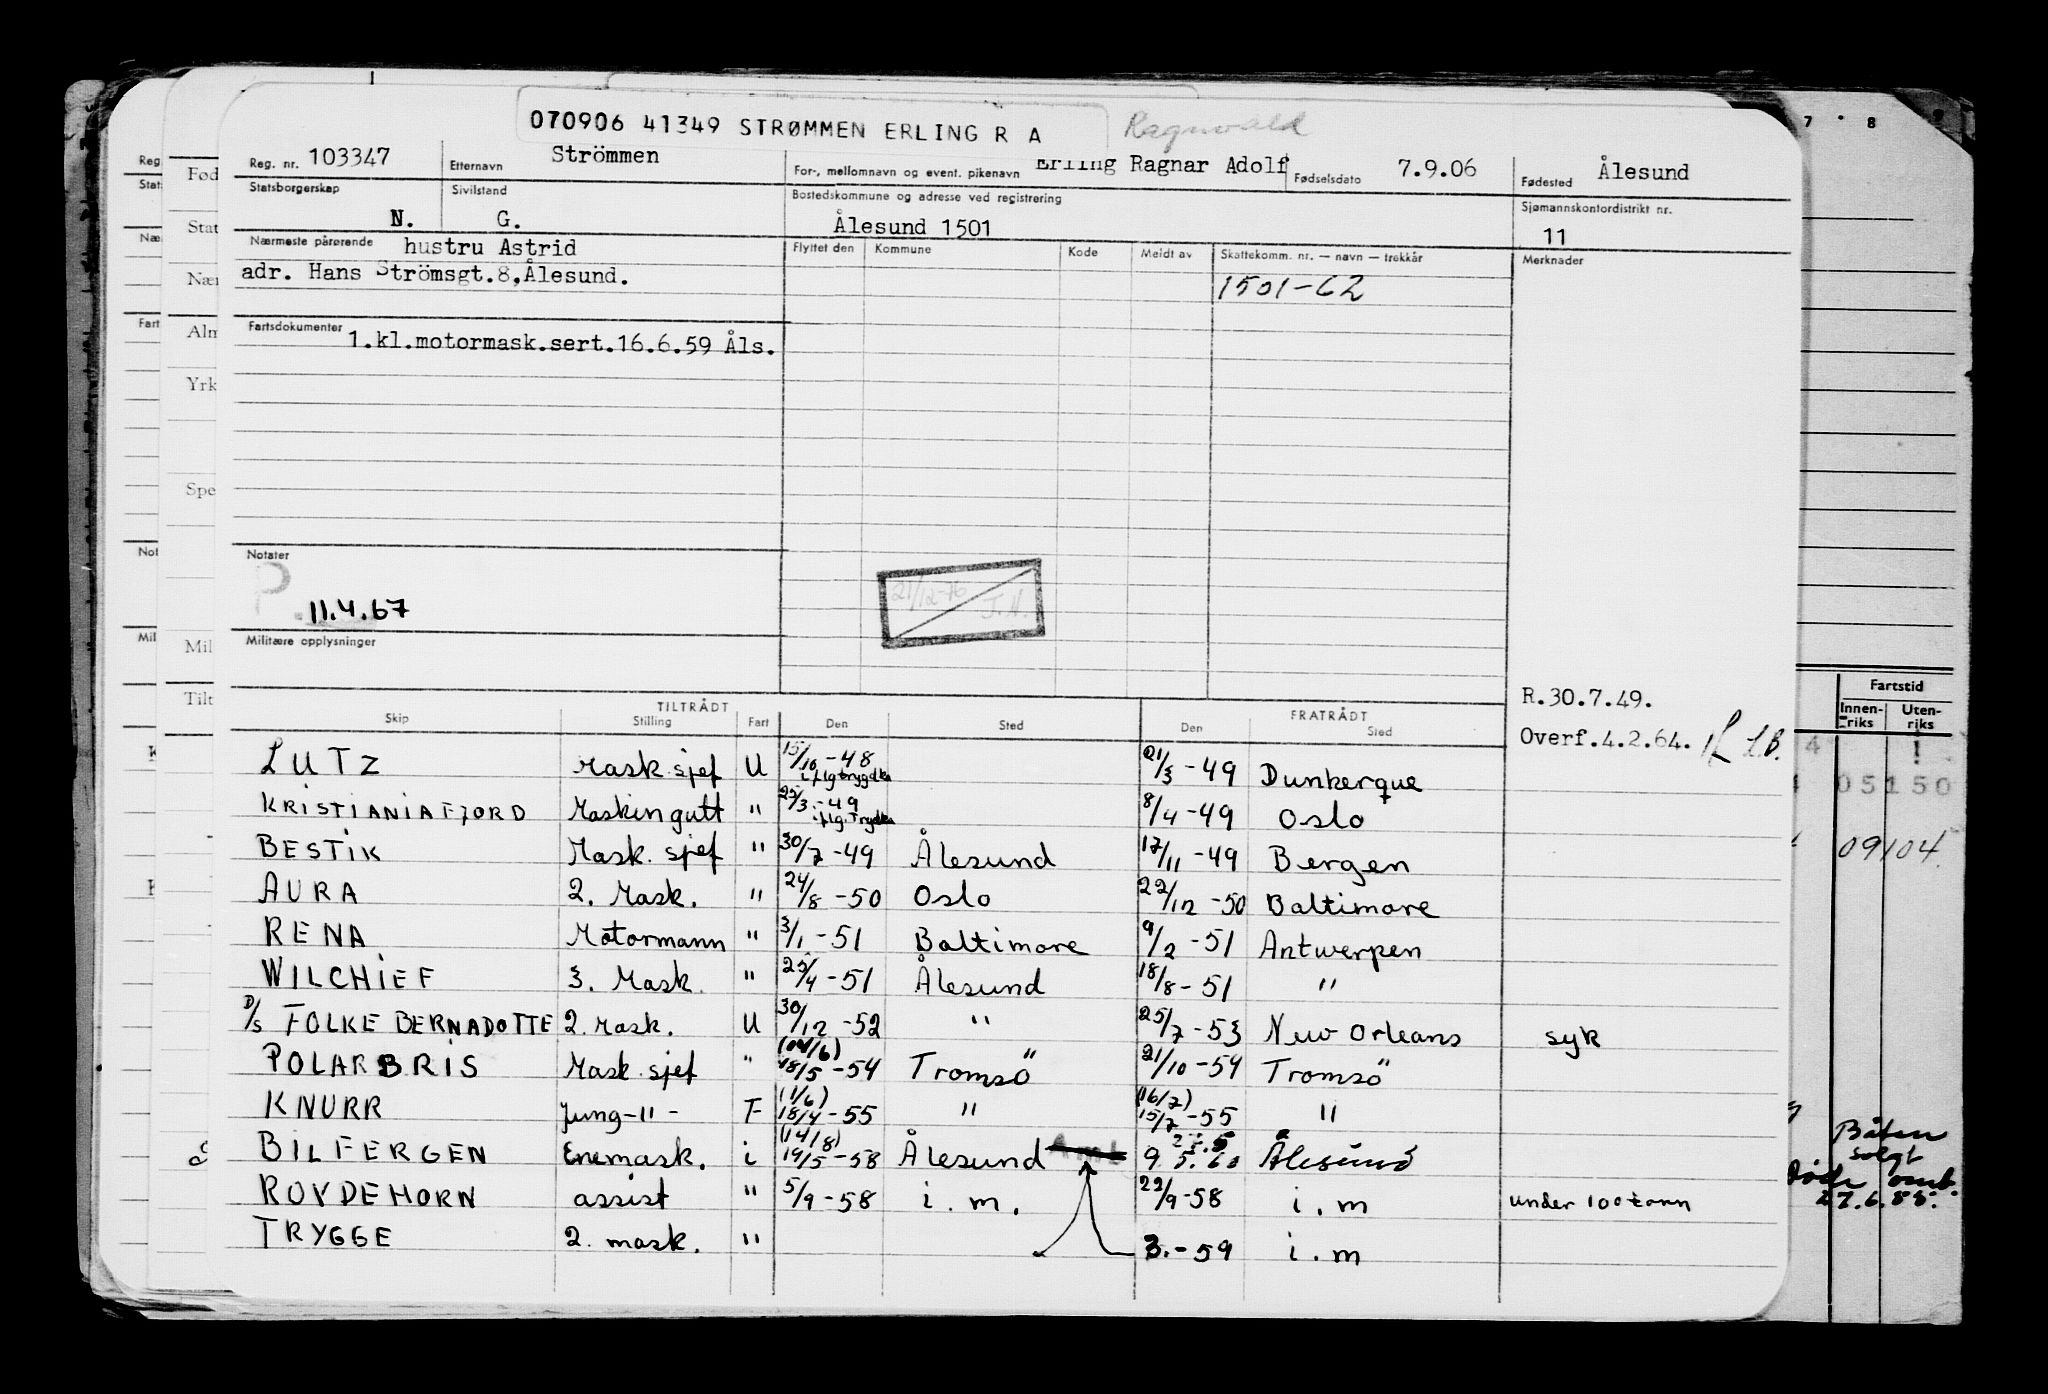 070906 41349 STRØMMEN ERLING R A Ragnvald
Reg. nr. 103347 Etternavn Strömmen For-, mellomnavn og event. pikenavn Erling Ragnar Adolf Fødselsdato 7.9.06 Fødested Ålesund
Statsborgerskap N. Sivilstand G. Bostedskommune og adresse ved registrering Ålesund 1501 Sjømannskontordistrikt nr. 11
Nærmeste pårørende hustru Astrid Flyttet den Kommune Kode Meldt av Skattekomm. nr. — navn — trekkår Merknader
adr. Hans Strömsgt.8,Ålesund. 1501-62
Fartsdokumenter 1.kl.motormask.sert.16.6.59 Åls.
Notater
P. 11.4.67
21/12-76 J.H.
Militære opplysninger
R.30.7.49.
Overf.4.2.64.
TILTRÅDT FRATRÅDT
Skip Stilling Fart Den Sted Den Sted
LUTZ Mask sjef U 15/10-48 i flg trygdka 21/3-49 Dunkerque
KRISTIANIAFJORD Maskingutt " 25/3-49 i flg. Trydka 8/4-49 Oslo
BESTIK Mask. sjef " 30/7-49 Ålesund 17/11-49 Bergen
AURA 2. Mask. " 24/8-50 Oslo 22/12-50 Baltimore
RENA Motormann " 3/1-51 Baltimore 9/2-51 Antwerpen
WILCHIEF 3. Mask. " 25/4-51 Ålesund 18/8-51 "
D/S FOLKE BERNADOTTE 2. Mask. U 30/12-52 " 25/7-53 New Orleans syk
POLARBRIS Mask sjef " 18/5-54 Tromsö 21/10-54 Tromsö
KNURR Jung-"- F (11/6) 18/4-55 " (16/7) 15/7-55 "
BILFERGEN Enemask. i (14/8) 19/5-58 Ålesund 9.5.60 Ålesund
ROVDEHORN assist " 5/9-58 i.m. 22/9-58 i.m under 100 tonn
TRYGGE 2. mask. " 3.-59 i.m
7 · 8 9
Fartstid
Innenriks Utenriks
05150
09104
Båten
solgt
Døde omb.
27.6.85.
Reg
Fød
Stat
Nær
Alm
Yrk
Spe
Mil
Tilt
Fart
Not